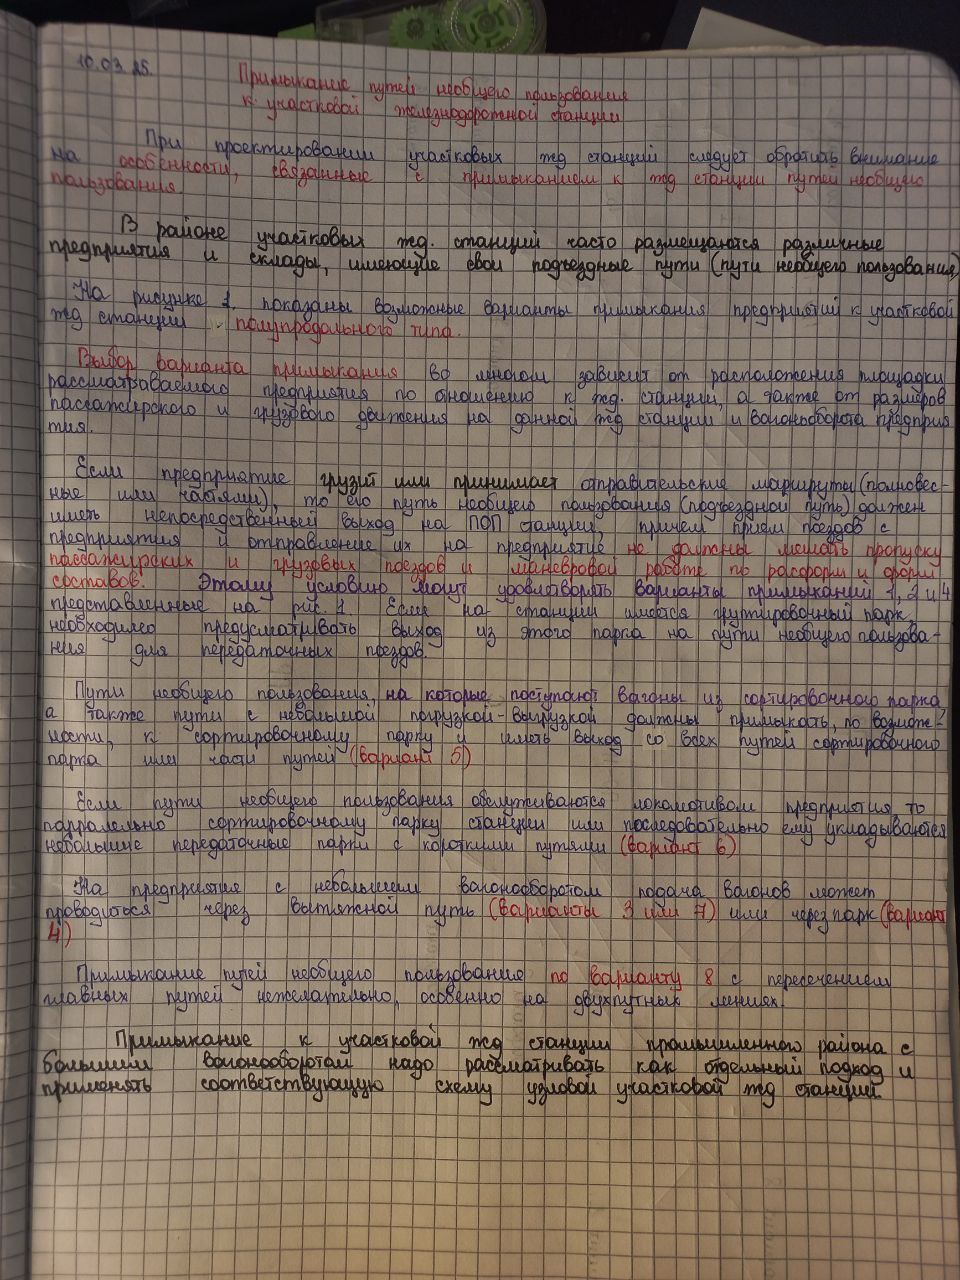 10.03.25.
Примыкание путей необщего пользования
к участковой железнодорожной станции
При проектировании участковых жд станций следует обратить внимание
на особенности, связанные с примыканием к жд станции путей необщего
пользования
В районе участковых жд. станций часто размещаются различные
предприятия и склады, имеющие свои подъездные пути (пути необщего пользования)
На рисунке 1 показаны возможные варианты примыкания предприятий к участковой
жд станции полупродольного типа.
Выбор варианта примыкания во многом зависит от расположения площадки
рассматриваемого предприятия по отношению к жд. станции, а также от размеров
пассажирского и грузового движения на данной жд станции и вагонооборота предприя
тия.
Если предприятие грузит или принимает отправительские маршруты (полновес-
ные или частями), то его путь необщего пользования (подъездной путь) должен
иметь непосредственный выход на ПОП станции, причем прием поездов с
предприятия и отправление их на предприятие не должны мешать пропуску
пассажирских и грузовых поездов и маневровой работе по расформ и форм
составов. Этому условию могут удовлетворять варианты примыканий 1, 2 и 4
представленные на рис. 1. Если на станции имеется группировочный парк,
необходимо предусматривать выход из этого парка на пути необщего пользова-
ния для передаточных поездов.
Пути необщего пользования, на которые поступают вагоны из сортировочного парка,
а также пути с небольшой погрузкой-выгрузкой должны примыкать, по возмож-
ности, к сортировочному парку и иметь выход со всех путей сортировочного
парка или части путей (вариант 5)
Если пути необщего пользования обслуживаются локомотивом предприятия то
парралельно сортировочному парку станции или последовательно ему укладываются
небольшие передаточные парки с короткими путями (вариант 6)
На предприятие с небольшим вагонооборотом подача вагонов может
проводиться через вытяжной путь (варианты 3 или 7) или через парк (вариант
4)
Примыкание путей необщего пользование по варианту 8 с пересечением
главных путей нежелательно, особенно на двухпутных линиях.
Примыкание к участковой жд станции промышленного района с
большим вагонооборотом надо рассматривать как отдельный подход и
применять соответствующую схему узловой участковой жд станции.